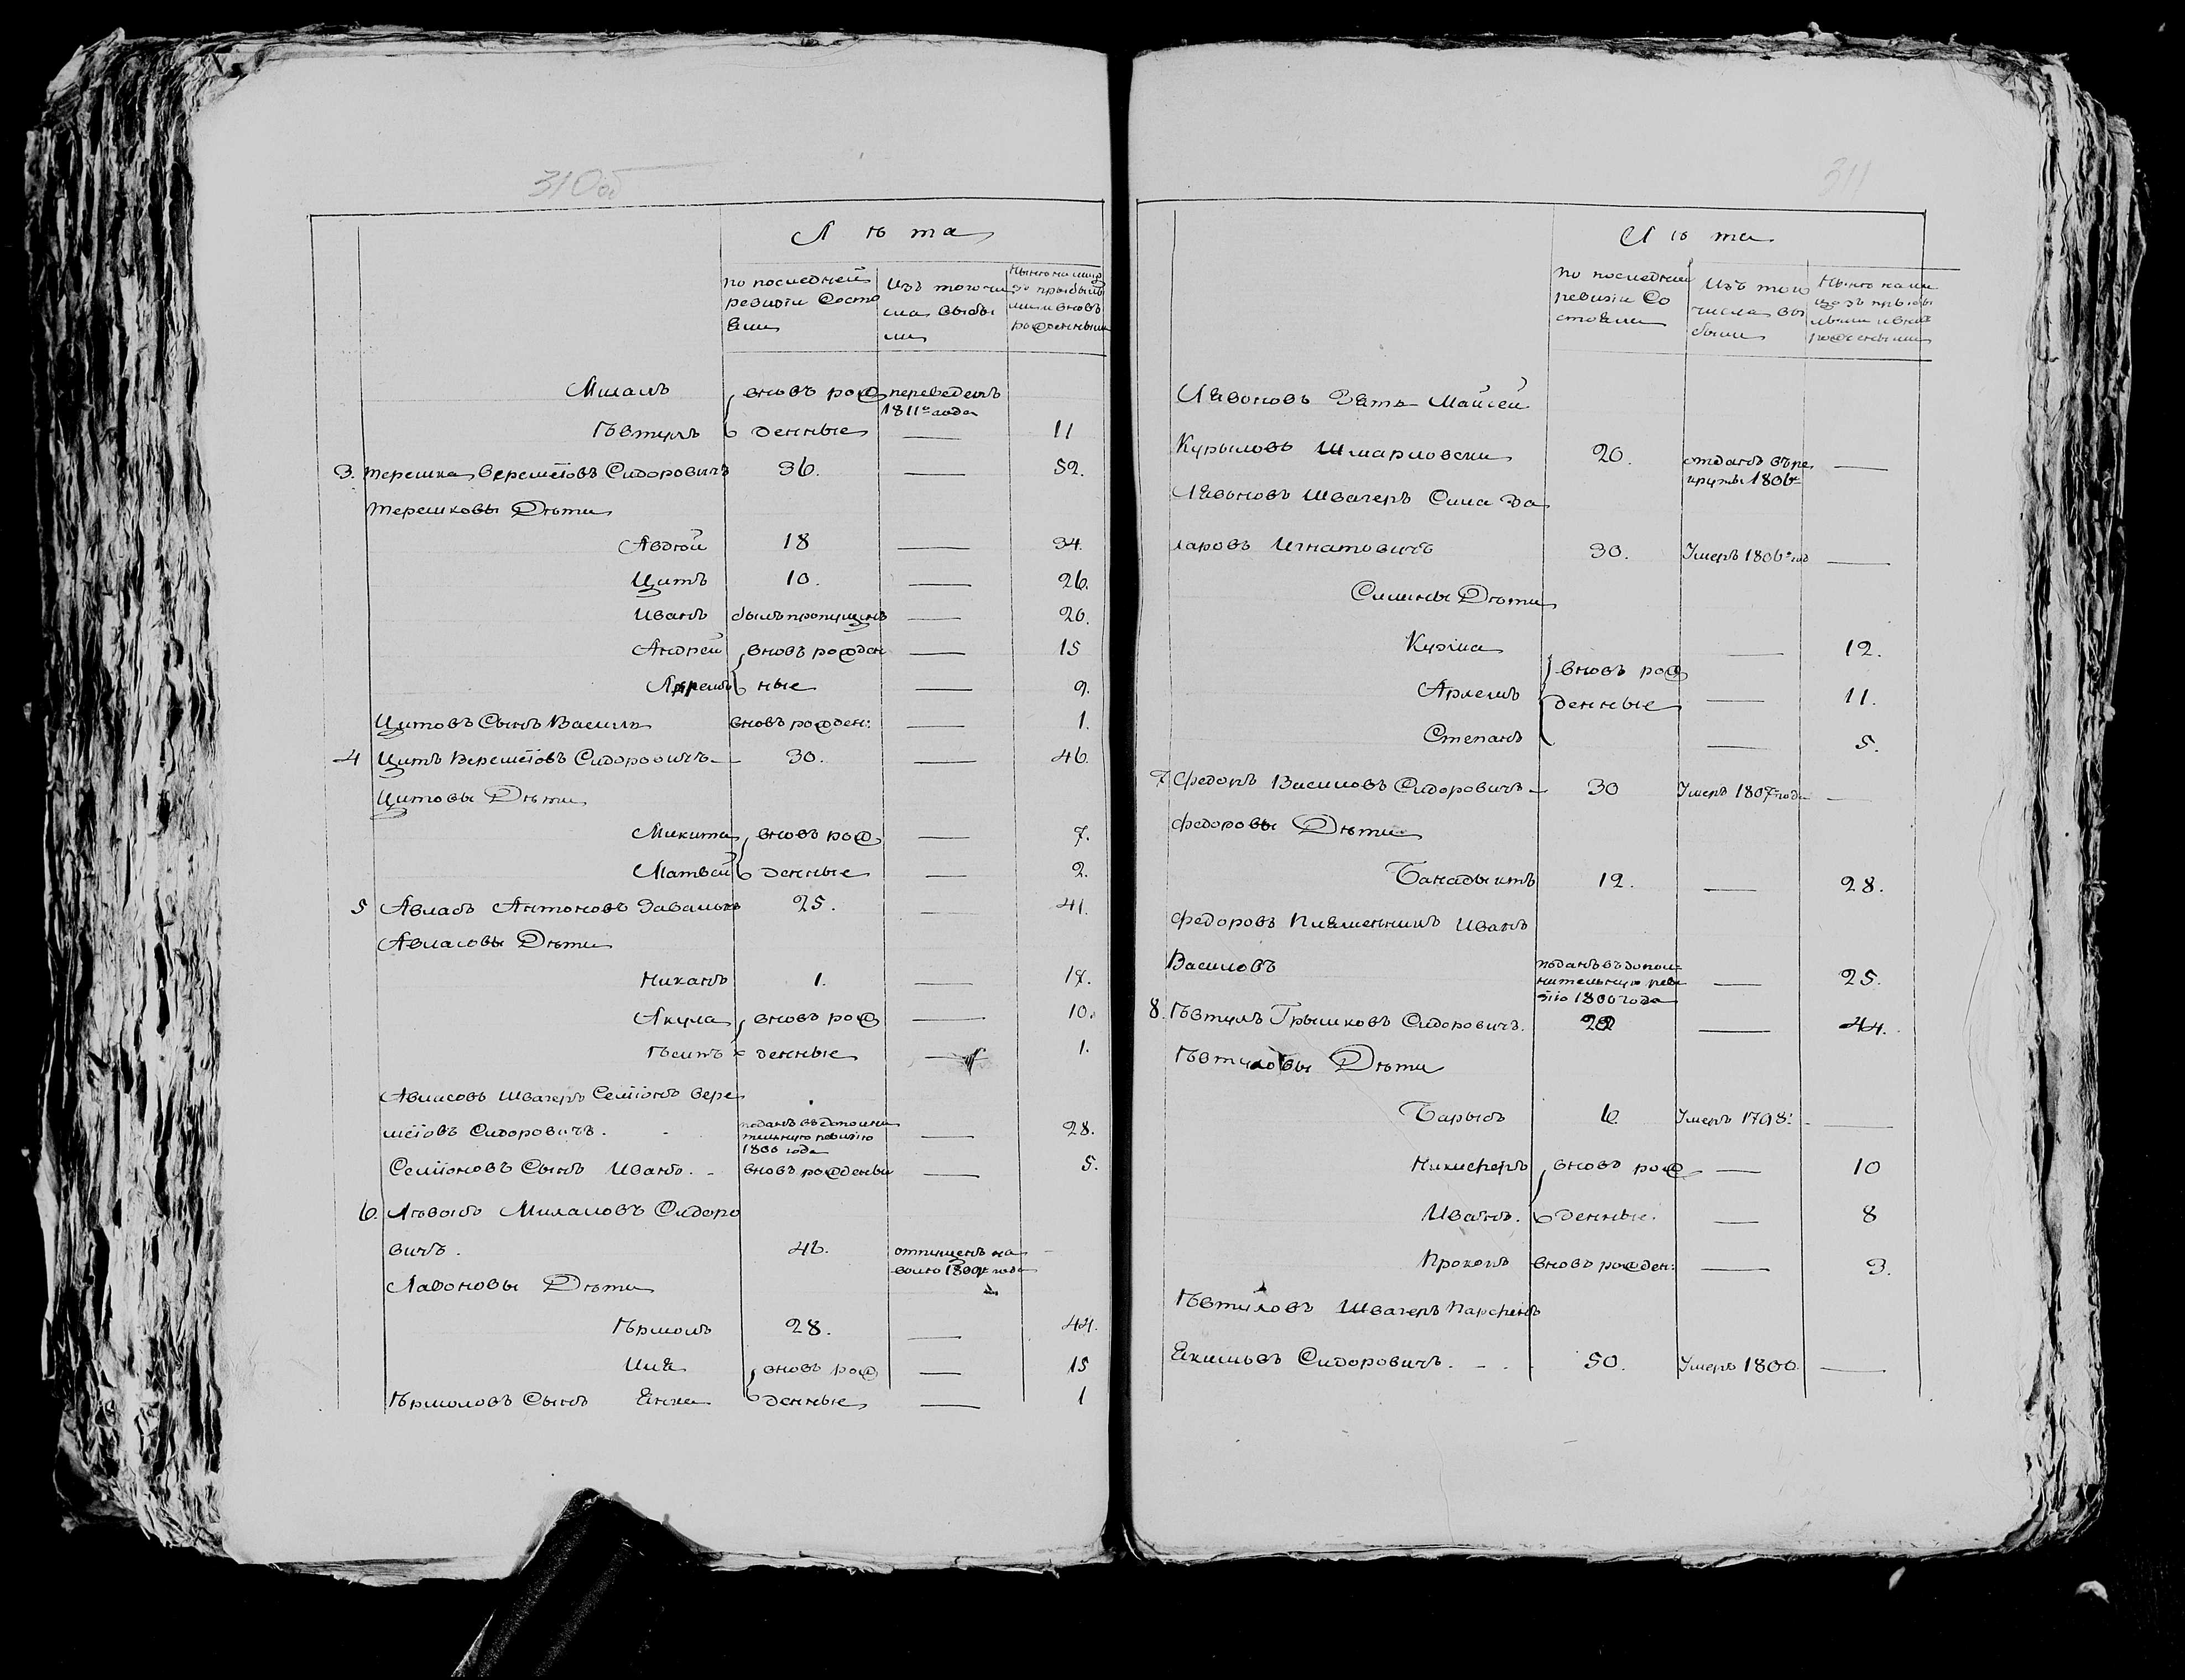 310об
Лѣта
по последней ревизiи состояли | Изъ того числа выбыли | Нынѣ налицо зъ прыбылыми и вновь рожденными
Миламъ вновь рож переведенъ
1811го года
Ѣвтухъ денные — 11
3. Терешка Веремѣiовъ Сидоровичъ 36. — 52.
Терешковы Дѣти
Авдѣй 18 — 34.
Цитъ 10. — 26.
Иванъ былъ пропущенъ — 20.
Андрей вновь рожден — 15
ные — 9.
Цитовъ Сынъ Василь вновь рожден: — 1.
4 Цитъ Веремѣiовъ Сидоровичъ — 30. — 46.
Цитовы Дѣти
Микита вновь рож — 7.
Матвей денные — 2.
5 Авласъ Антоновъ 25. — 41.
Авласовы Дѣти
Никанъ 1. — 17.
Акула вновь рож — 10.
Ѣсипъ денные — 1.
Авласовъ Швагеръ Семiонъ Вере
мѣiовъ Сидоровичъ. поданъ въ дополни
тельную ревизiю
1800 года — 28.
Семiоновъ Сынъ Иванъ. вновь рожденъ — 5.
6. Лѣвонъ Милаховъ Сидоро
вичъ. 46. отпущенъ на
волю года
Лавоновы Дѣти
Ѣрмолъ 28. — 44.
Иля вновь рож — 15
Ѣрмоловъ Сынъ Янка денные — 1
311
Лѣта
по последней ревизiи Состояли | Изъ того числа выбыли | Нынѣ налицо зъ прыбылыми и вновь рожденными
Лявоновъ Зять Майсей
Курыловъ Шмарловски 20. отданъ въ ре
круты 1806 —
Лявоновъ Швагеръ Сила За
харовъ Игнатовичъ 30. Умеръ 1806го год —
Силины Дѣти
Кузма — 12.
вновь рож
Архемъ денные — 11.
Степанъ — 5.
7 Федоръ Василовъ Сидоровичъ — 30 Умеръ 1807 года —
Федоровы Дѣти
Банадыктъ 12. — 28.
Федоровъ Пляменникъ Иванъ
Василовъ поданъ въ допол
нительную реви
зiю 1800 года — 25.
8. Ѣвтухъ Грышковъ Сидоровичъ. 28 — 44.
Ѣвтуховы Дѣти
Барысъ 6 Умеръ 1798: —
Никиферъ вновь рож — 10
Иванъ. денные. — 8
Прокопъ вновь рожден: — 3.
Ѣвтуховъ Швагеръ Парфенъ
Якимовъ Сидоровичъ. 50. Умеръ 1800. —